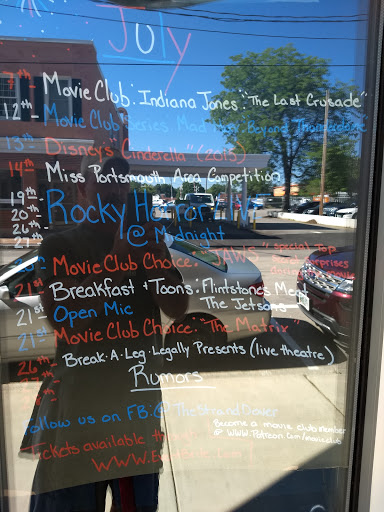 July
7th - Movie Club: Indiana Jones: "The Last Crusade"
12th - Movie Club Series Mad Max: Beyond Thunderdome
13th Disney's "Cinderella" (2015)
14th Miss Portsmouth Area Competition
19th
20th Rocky Horror
26th @ Midnight
21st
Movie Club Choice: "JAWS" Special Top
Surprises
21st Breakfast + Toons: Flintstones Meet
The Jetsons
21st Open Mic
21st Movie Club Choice: "The Matrix"
26th Break-A-Leg-Legally Presents (live theatre)
Rumors
Follow us on FB: @TheStrandDover
Become a movie club member
@ www.Patreon.com/movieclub
"Tickets available